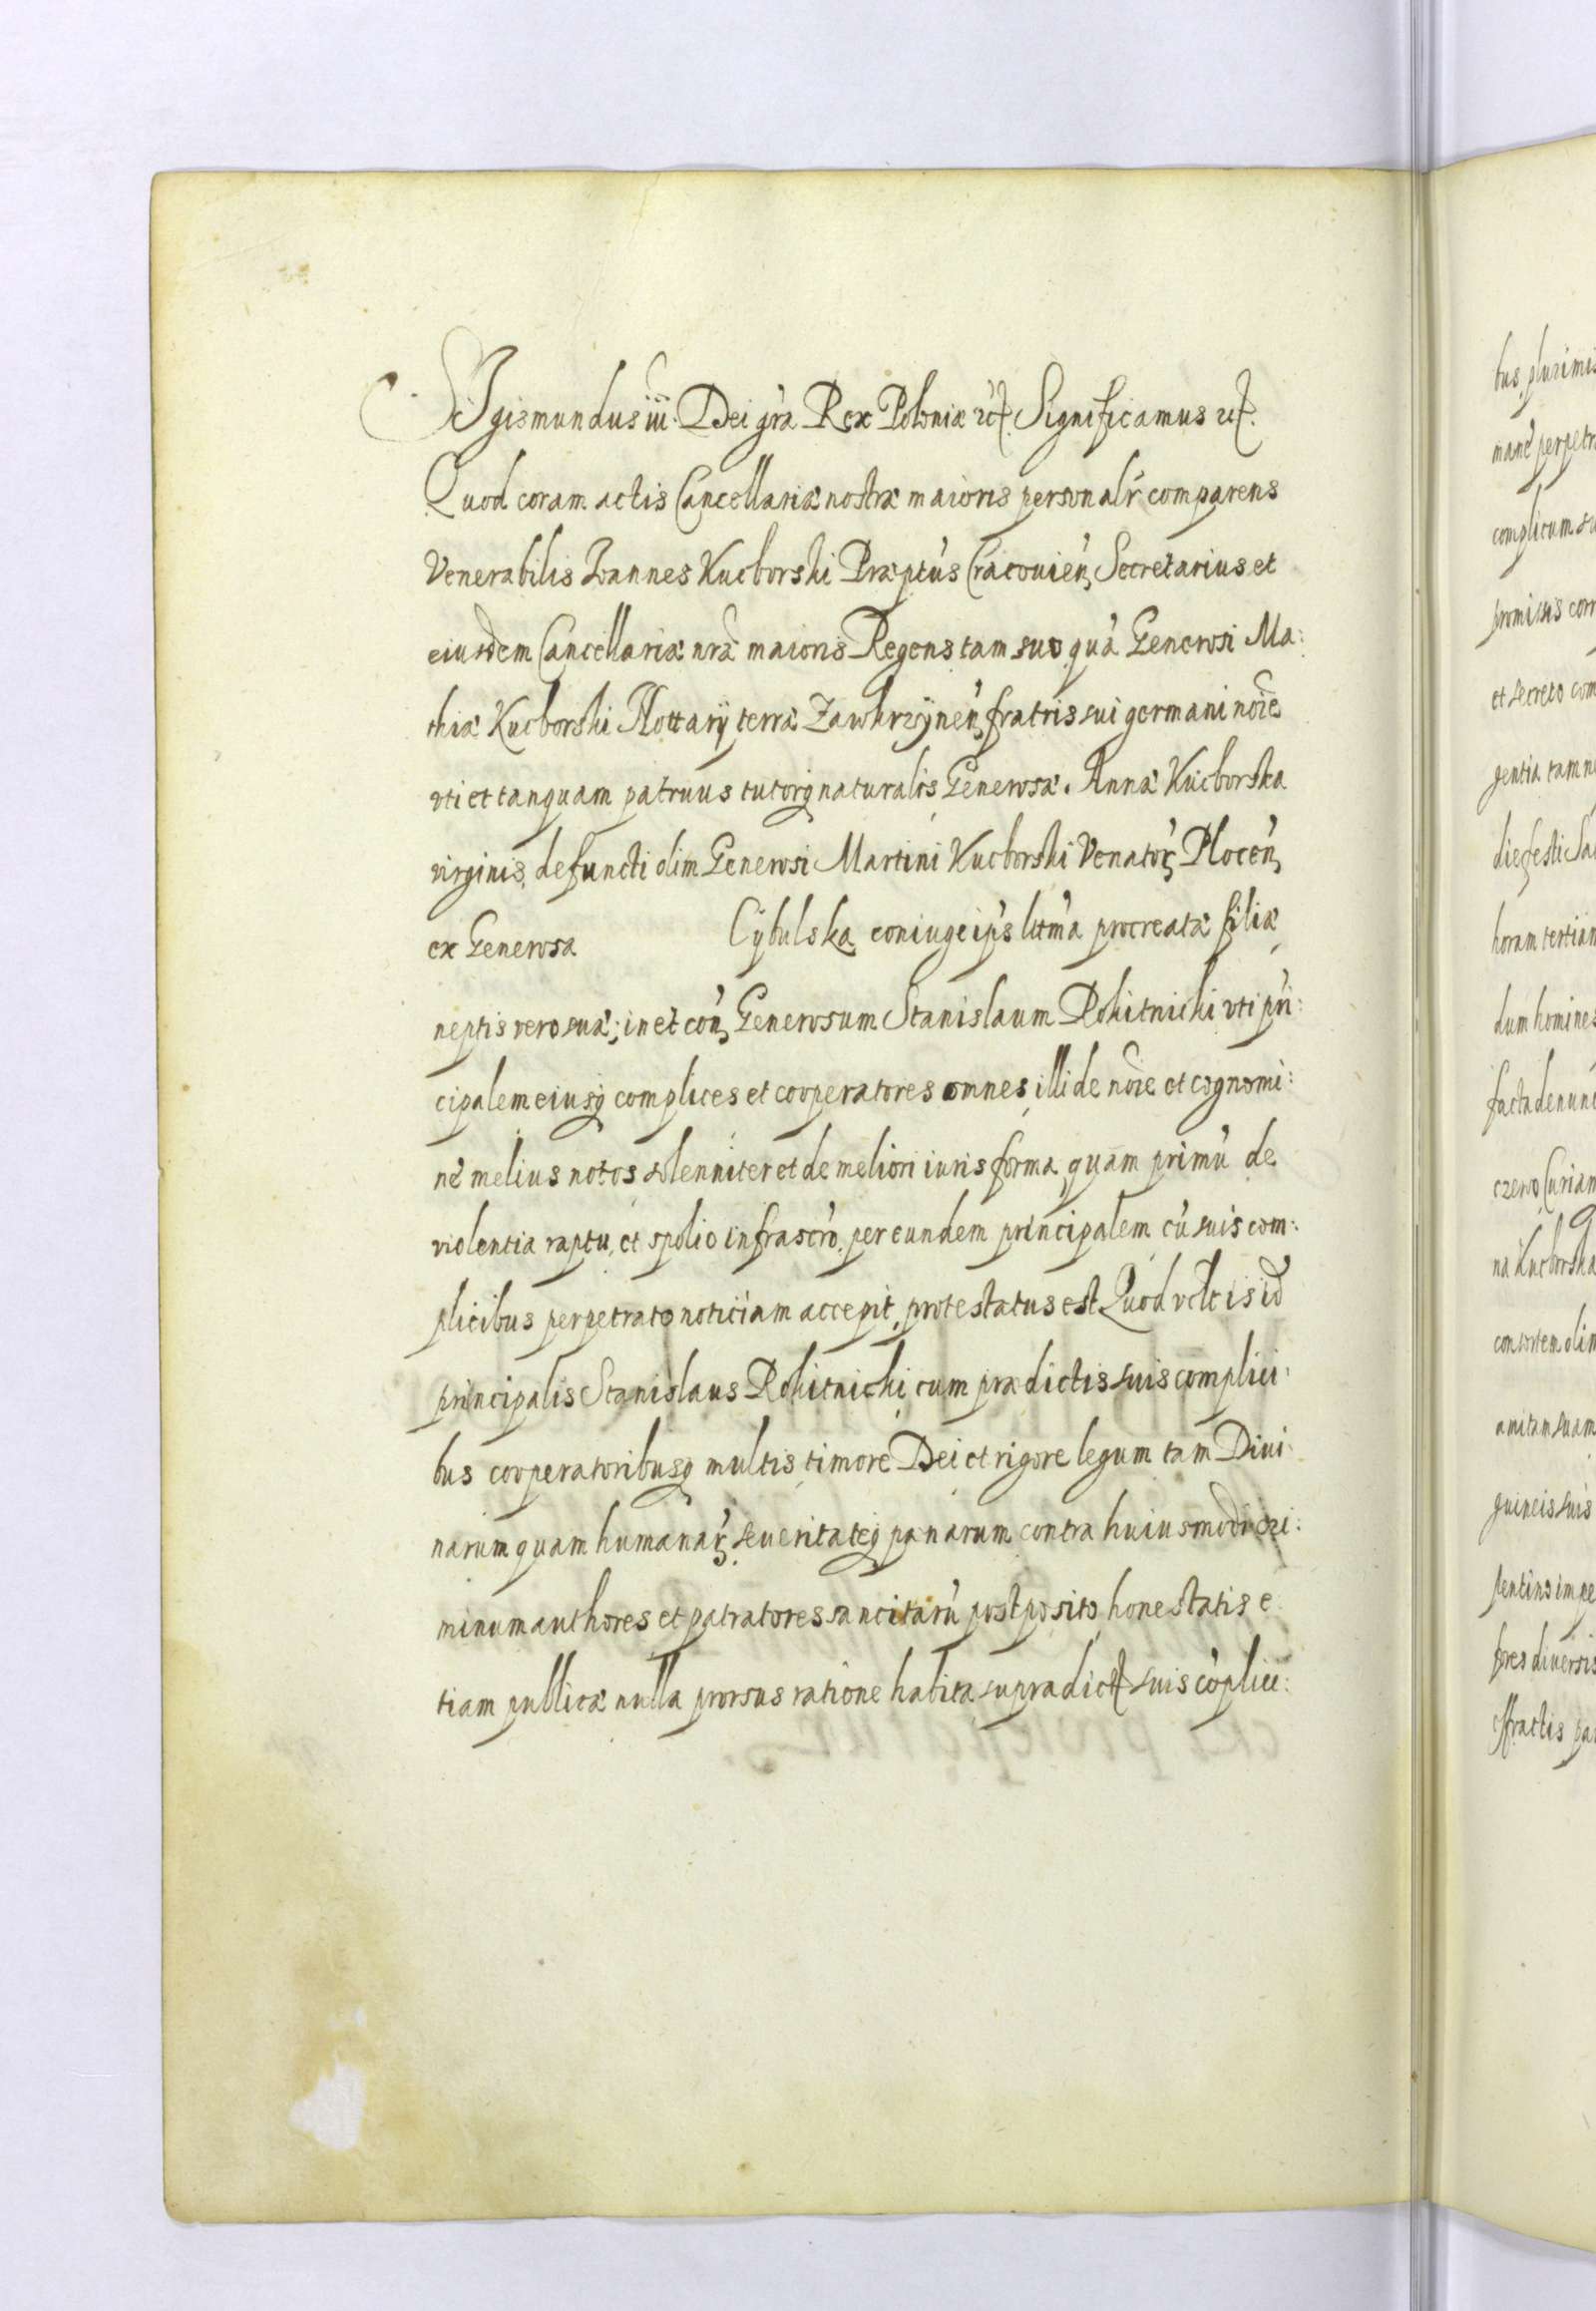 SIgismundus iii. Dei gra Rex Poloniæ etc. Significamus etc.
Quod coram actis Cancellariæ nostræ maioris personalr comparens
Venerabilis Ioannes Kucborski Præptus Cracouien, Secretarius et
eiusdem Cancellariæ nræ maioris Regens tam suo quā Generosi Ma:
thiæ Kucborski Nottarÿ terræ Zawkrzÿnen, fratris sui germani noīe
vti et tanquam patruus tutorq naturalis Generosæ. Annæ Kucborska
virginis, defuncti olim Generosi Martini Kucborski Venator, Plocen,
ex Generosa Cÿbulska coniuge ips ltma procreatæ filiæ,
neptis vero suæ; in et con, Generosum Stanislaum Rokitnicki vti prin:
cipalem eiusq complices et cooperatores omnes, illi de noīe et cognomi:
ne melius notos solenniter et de meliori iuris forma, quam primū de
violentia raptu, et spolio infrascro, per eundem principalem cū suis com:
plicibus perpetrato noticiam accepit, protestatus est Quod vbi is id
principalis Stanislaus Rokitnicki, cum prædictis suis complici:
bus cooperatoribusq multis, timore Dei et rigore legum tam Diui:
narum quam humanar, seueritateq pænarum contra huiusmodi cri:
minum authores et patratores sancitarū postposito, honestatis e:
tiam publicæ nulla prorsus ratione habita, supradict suis cōplici:
bus, plurimis
mane perpetr
complicum su
promissis corr
et secreto com
gentia tam n
die festi Sa
horam tertiam
dum homines
facta denunc
czewo Curiam
na Kucborska
consortem olim
amitam suam
guineis suis
pentino impe
fores diuersis
effractis pa